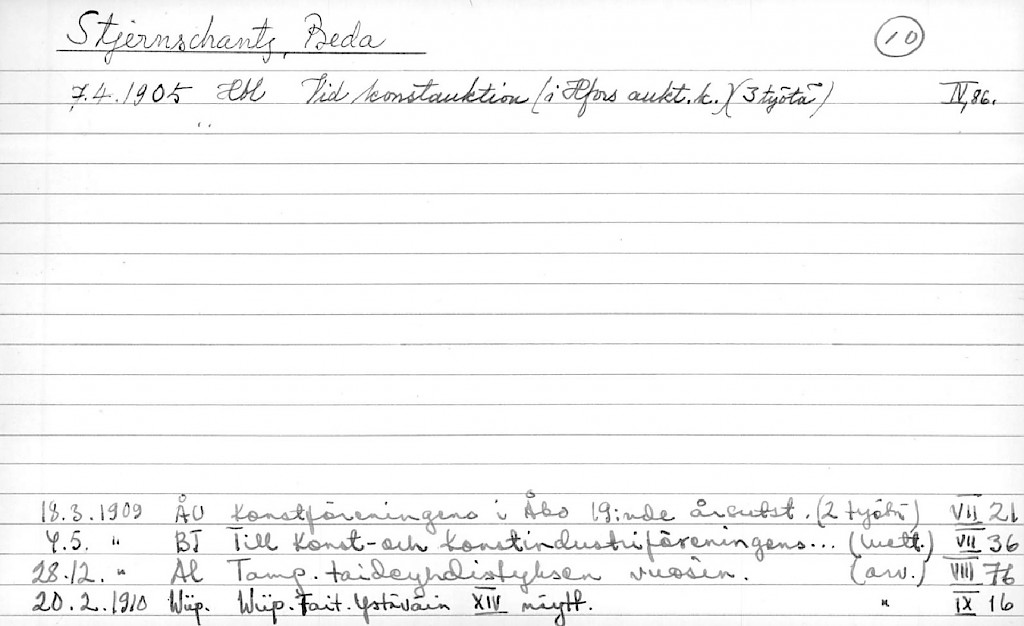 Stjernschantz, Beda 10
7.4.1905 Hbl Vid konstauktion (i Hfors aukt.k.) (3 työtä) IV, 86.
18.3.1909 ÅU Konstföreningens i Åbo 19:nde årsutst. (2 työtä) VII 21
4.5. " BT Till Konst-och konstindustriföreningens... (luett.) VII 36
28.12. " Al Tamp. taideyhdistyksen vuosin. (arv.) VIII 76
20.2.1910 Wiip. Wiip. Tait. Ystäväin XIV näytt. " IX 16